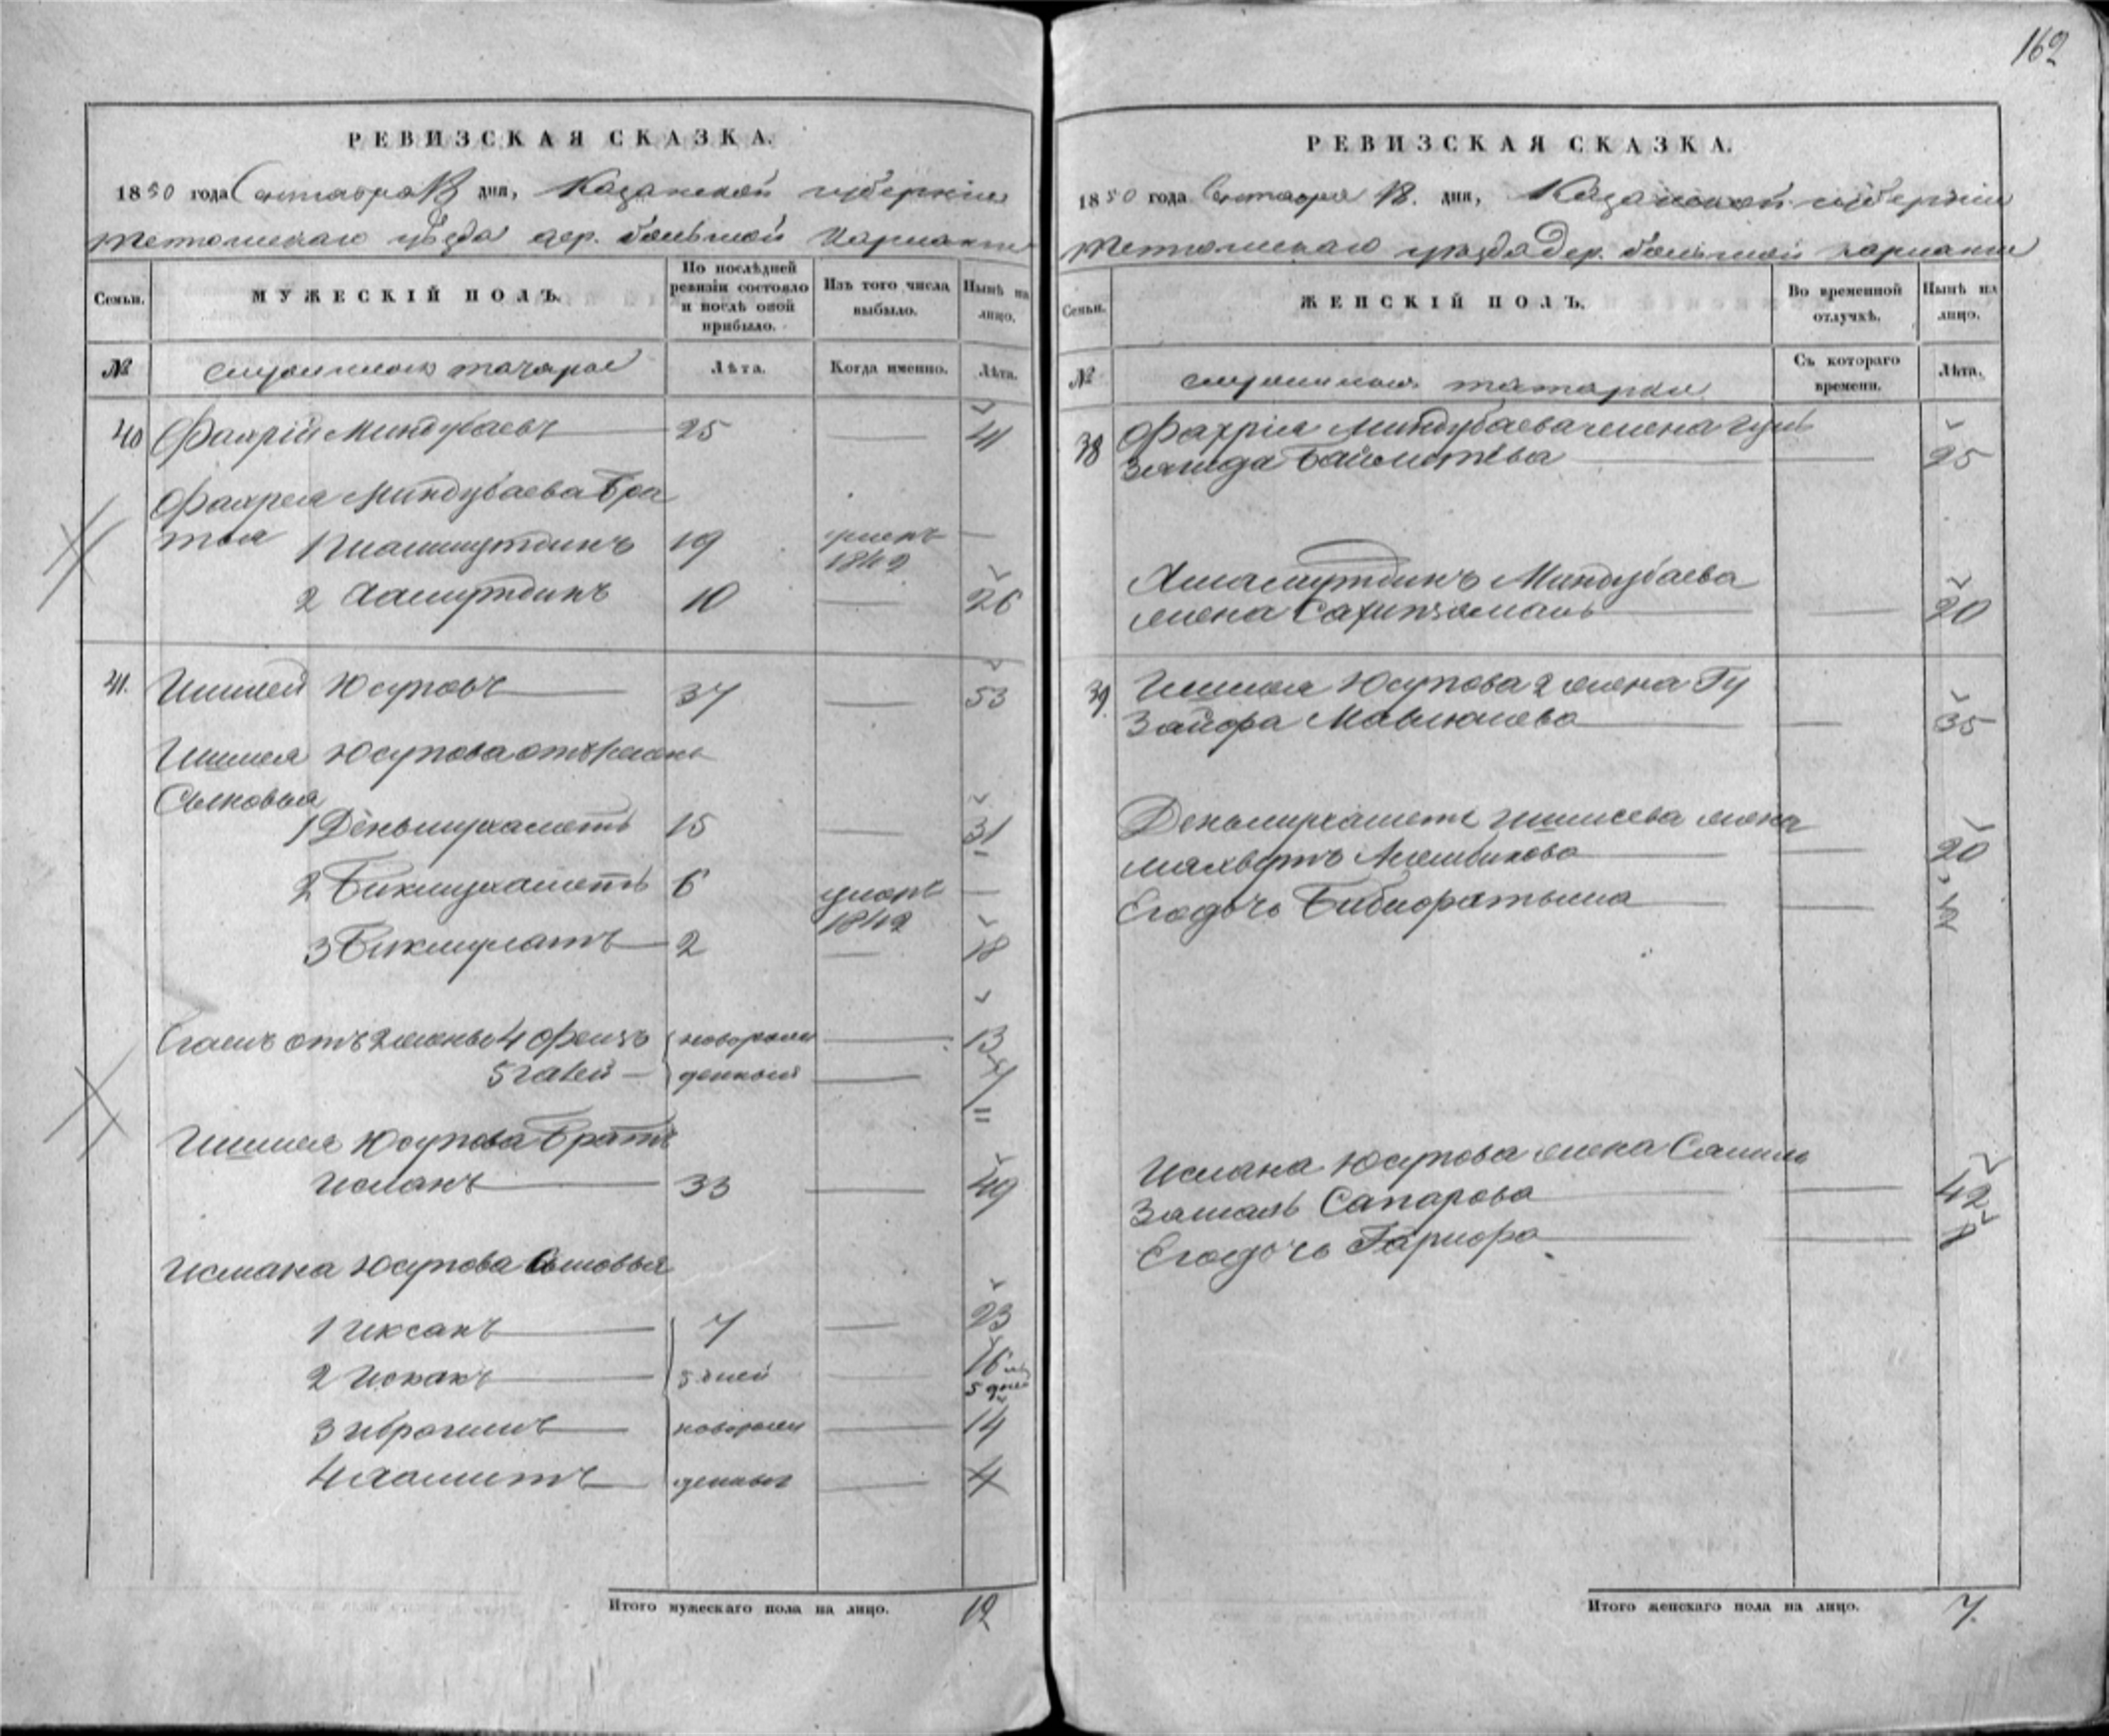 162
РЕВИЗСКАЯ СКАЗКА.
1850 года Сентября 18 дня, Казанской губернии
Тетюшскаго уѣзда дер. большой
Семьи.
МУЖЕСКІЙ ПОЛЪ.
По послѣдней ревизіи состояло и послѣ оной прибыло.
Изъ того числа выбыло.
Нынѣ на лицо.
№
татаръ
Лѣта.
Когда именно.
Лѣта.
40 Фахрій Миндубаевъ 25 — 41
Фахрея Миндубаева Бра
тья 1 19 умеръ 1842 —
2 10 — 26
41. Ишмей Юсуповъ 37 — 53
Ишмея Юсупова от 1 жены
Сыновья
1 Деньмухаметь 15 — 31
2 Бикмухаметь 6 умеръ 1842 —
3 Бикмулатъ 2 — 18
Егожъ отъ 2 жены 4 Феизъ новорож — 13
5 Галей — денныя — 11
Ишмея Юсупова Братъ
Исманъ 33 — 49
Исмана Юсупова Сыновья
1 Иксанъ 7 — 23
2 Исхакъ 5 дней 16 лѣ 5 дней
3 Ибрагимъ новорож — 14
4 Хамитъ денныя — 4
Итого мужескаго пола на лицо. 12
РЕВИЗСКАЯ СКАЗКА.
1850 года Сентября 18. дня, Казанской губерніи
Тетюшскаго уѣзда Дер. большой
Семьи.
ЖЕНСКІЙ ПОЛЪ.
Во временной отлучкѣ.
Нынѣ на лицо.
№
татарки
Съ котораго времени.
Лѣта.
38 Фахрія Миндубаева жена Гуль
Загида — 25
Миндубаева
жена Сахипзямаль — 20
39. Ишмея Юсупова 2 жена Гу
Зайфа Мавлюшева — 35
Деньмухаметя Ишмеева жена
— 20
Егодочь — 12
Исмана Юсупова жена
Сапарова — 42
Егодочь — 8
Итого женскаго пола на лицо. 7.